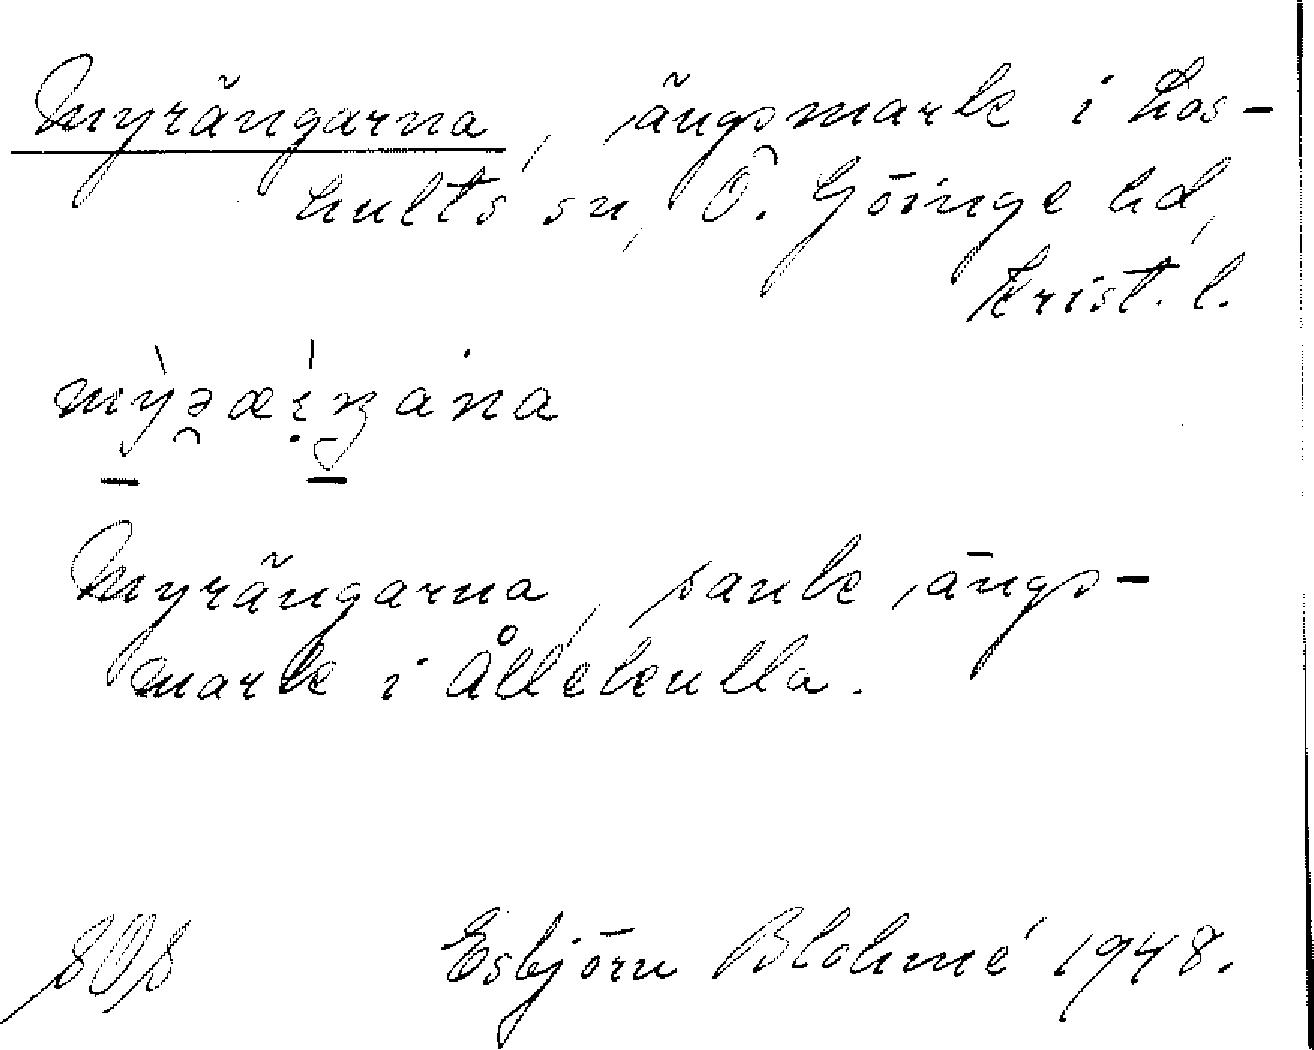 Myrängarna, ängsmark i Los-
hults sn, Ö. Göinge hd,
Krist. l.
Myrängarna, sank ängs-
mark i Ållekulla.
Esbjörn Blohmé 1948.